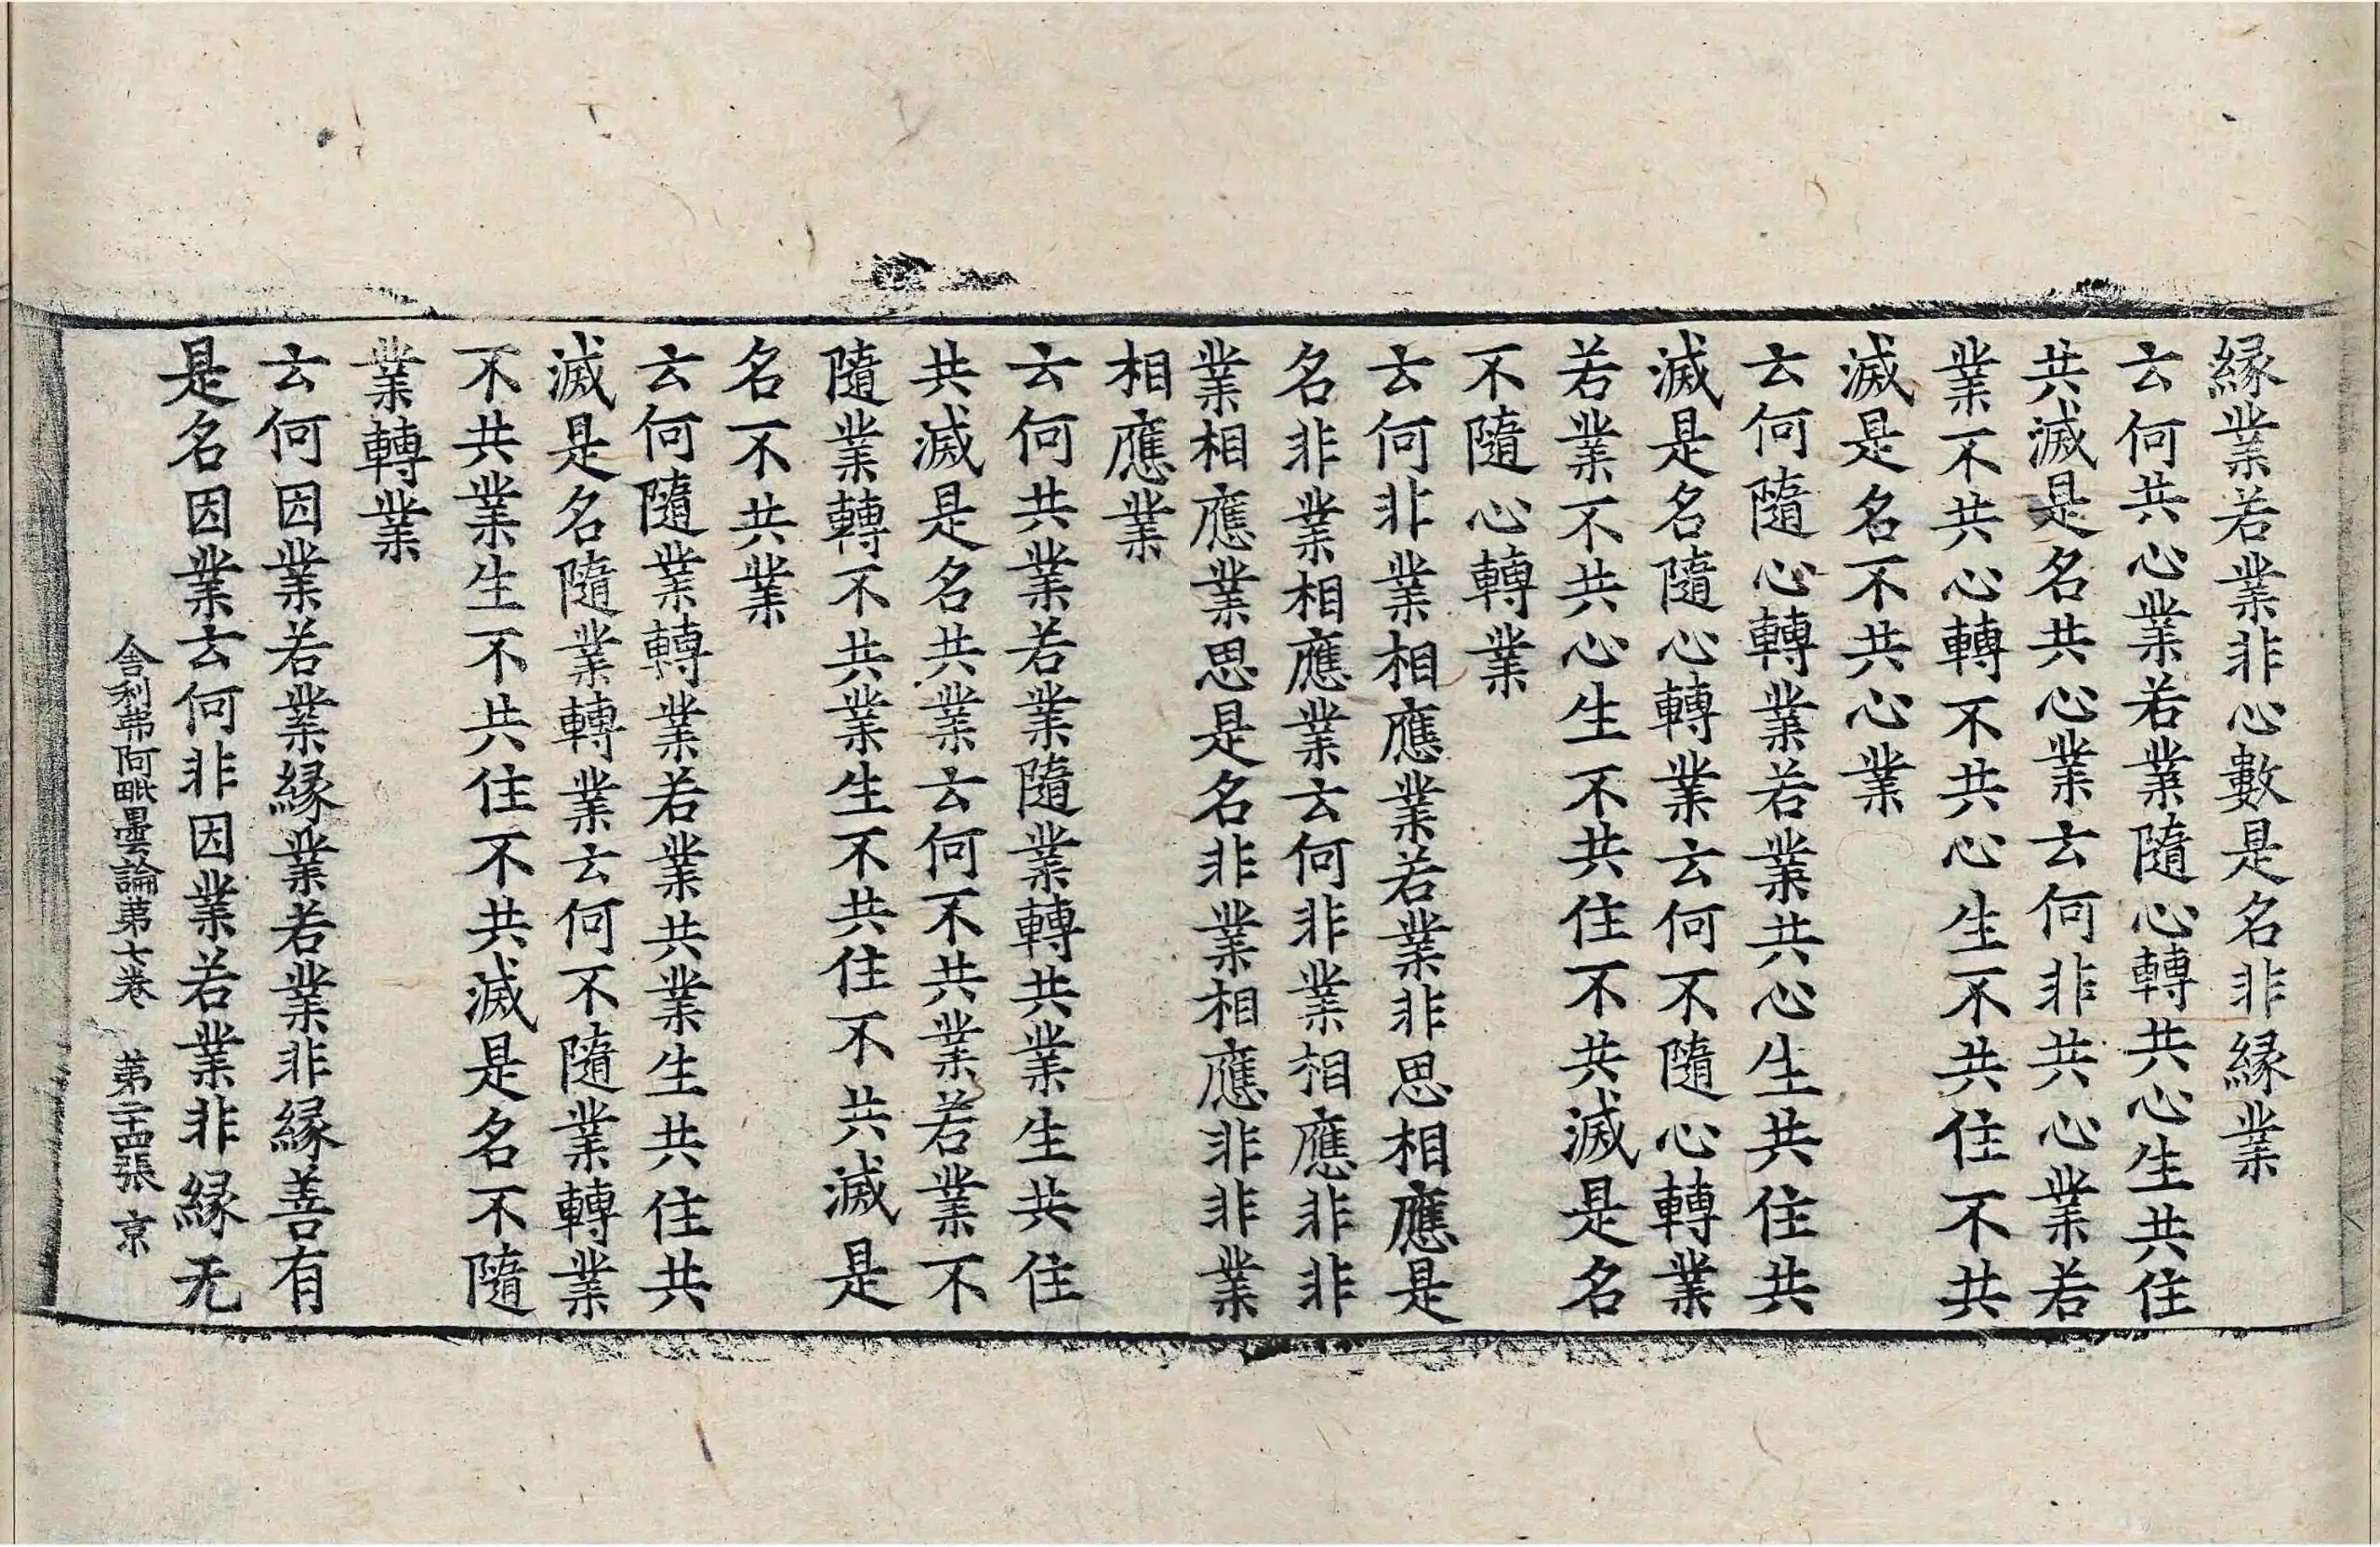 縁業若業非心數是名非縁業
云何共心業若業隨心轉共心生共住
共滅是名共心業云何非共心業若
業不共心轉不共心生不共住不共
滅是名不共心業
云何隨心轉業若業共心生共住共
滅是名隨心轉業云何不隨心轉業
若業不共心生不共住不共滅是名
不隨心轉業
云何非業相應業若業非思相應是
名非業相應業云何非業相應非非
業相應業思是名非業相應非非業
相應業
云何共業若業隨業轉共業生共住
共滅是名共業云何不共業若業不
隨業轉不共業生不共住不共滅是
名不共業
云何隨業轉業若業共業生共住共
滅是名隨業轉業云何不隨業轉業
不共業生不共住不共滅是名不隨
業轉業
云何因業若業縁業若業非縁善有
是名因業云何非因業若業非縁无
舎利弗阿毗曇論第七卷 第二十四張 京